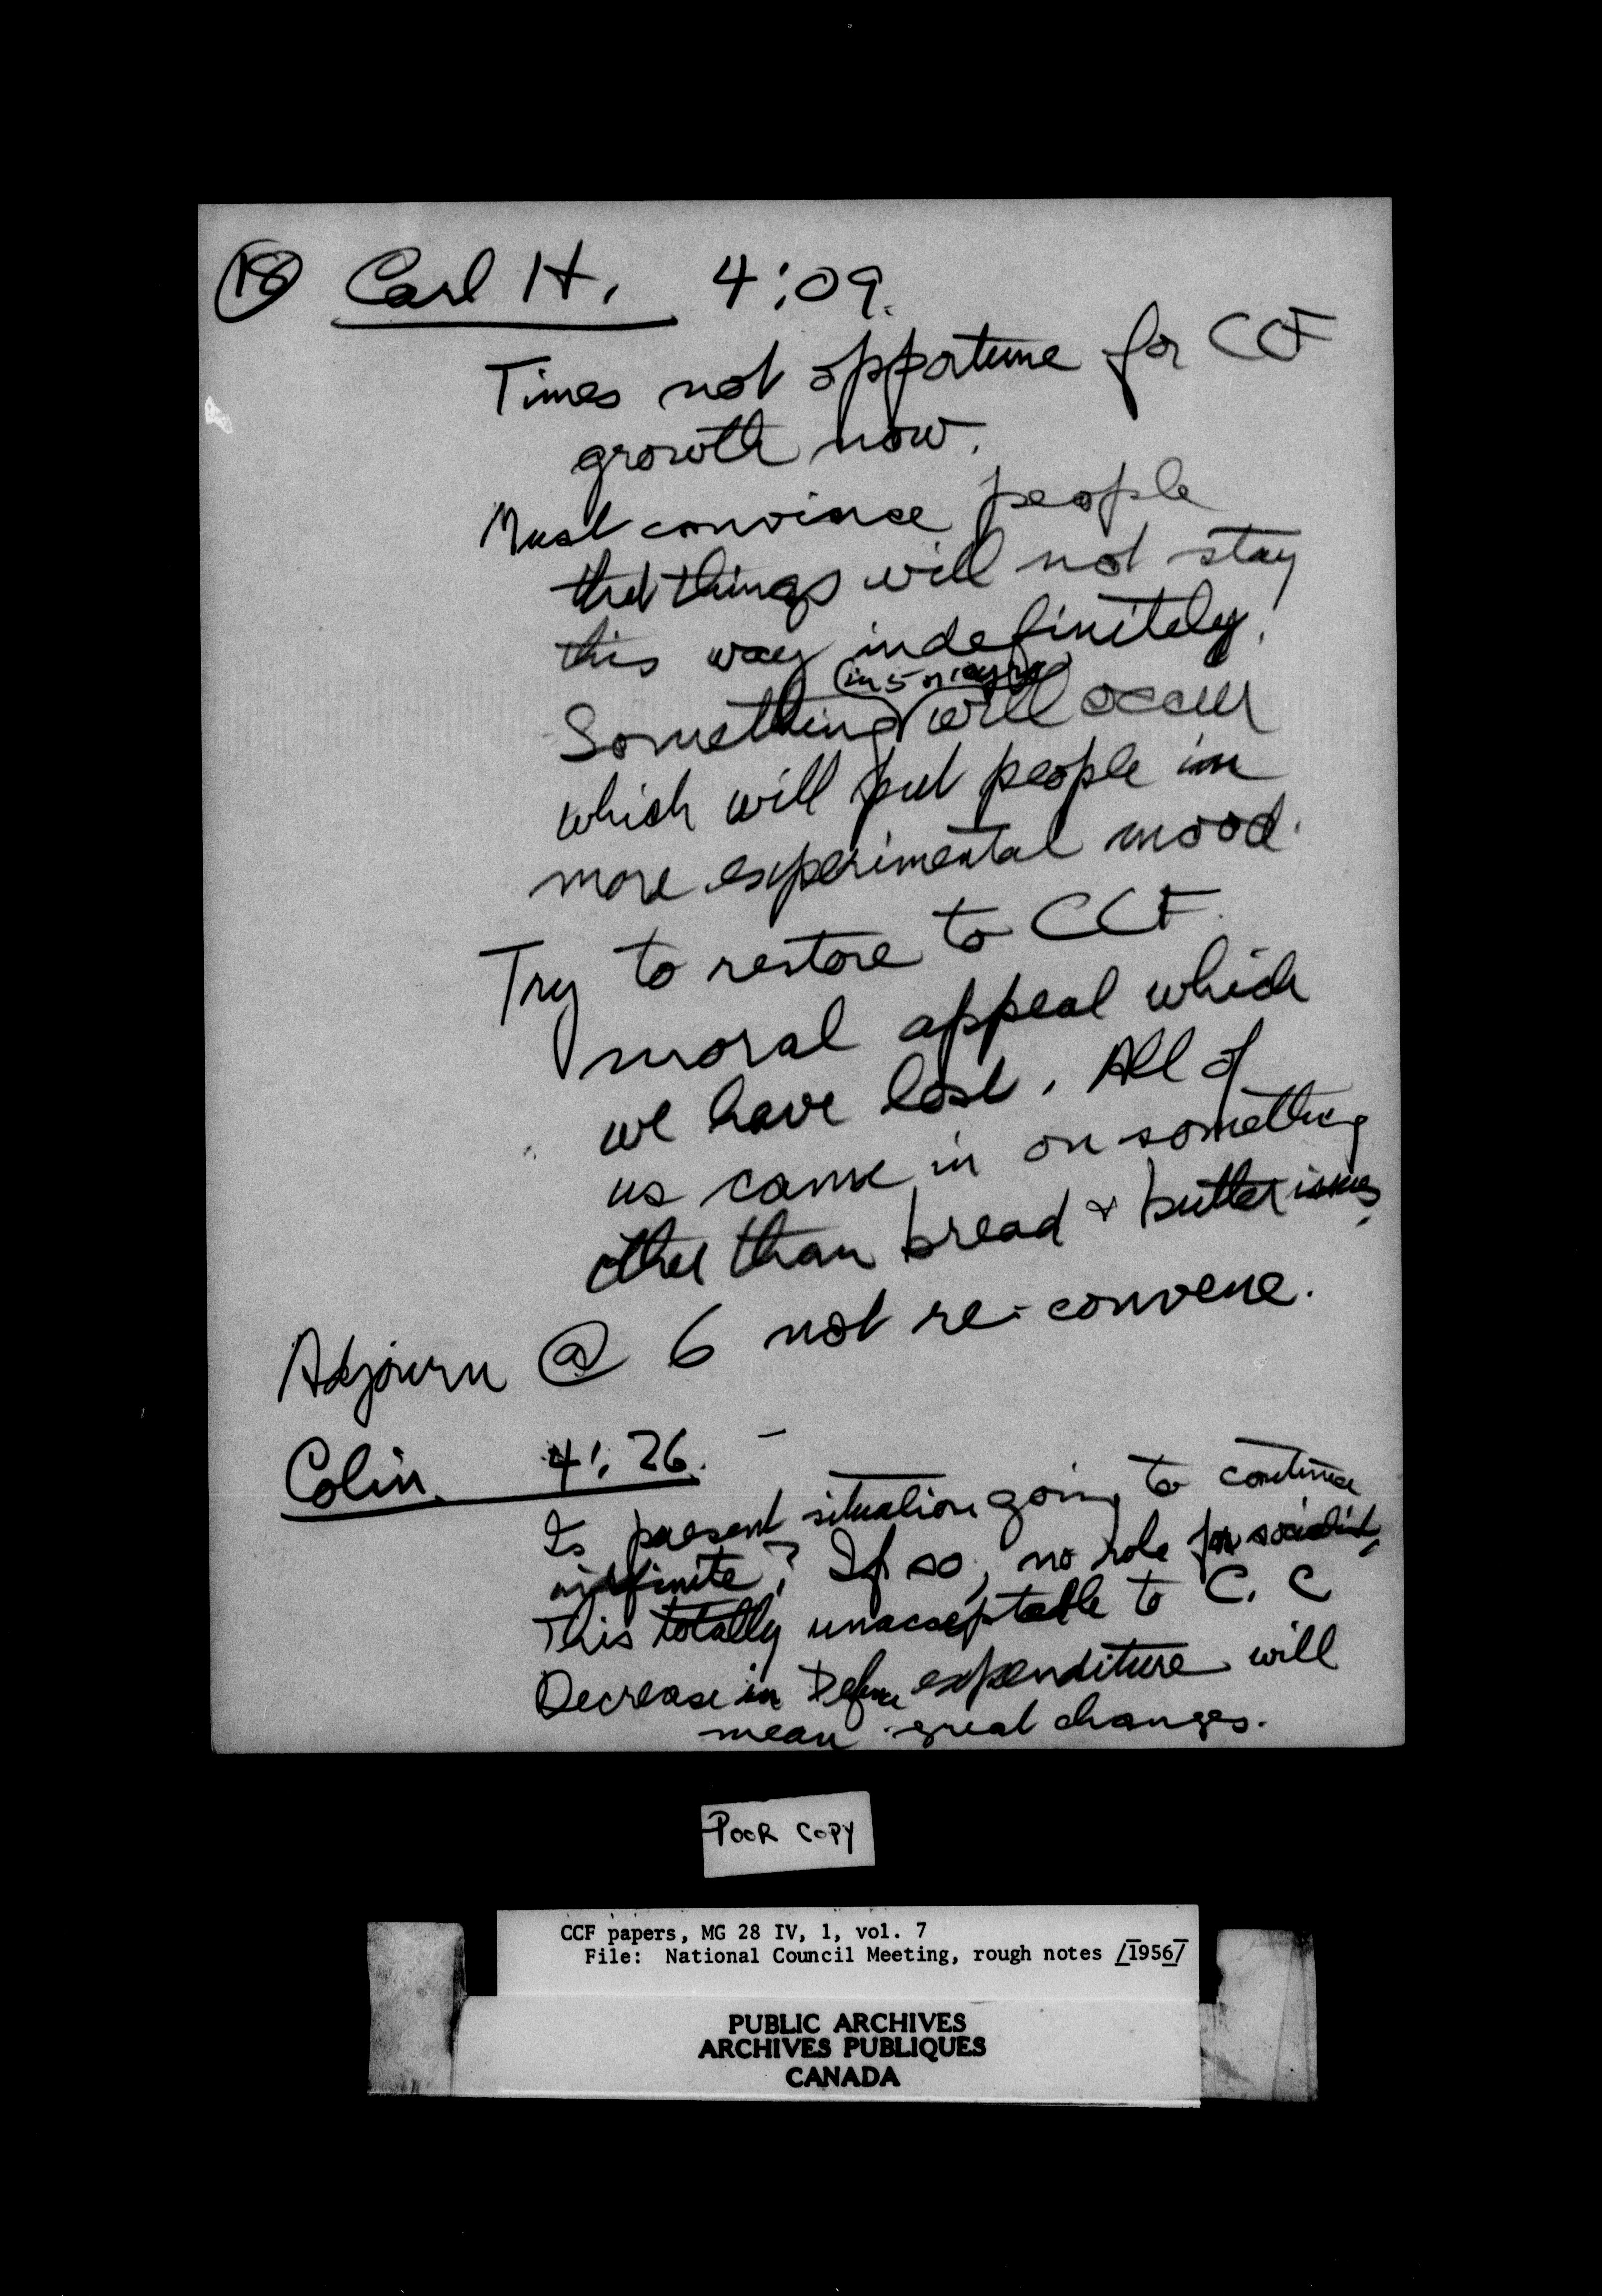 18 Carl H. 4:09.
Times not opportune for CCF
growth now.
Must convince people
that things will not stay
this way indefinitely.
(in 5 or 10 yrs)
Something will occur
which will put people in
more experimental mood.
Try to restore to CCF
moral appeal which
we have lost. All of
us came in on something
other than bread & butter issues.
Adjourn @ 6 not re-convene.
Colin 4:26. -
Is present situation going to continue
indefinite? If so, no role for socialist,
This totally unacceptable to C. C
Decrease in Defence expenditure will
mean great changes.
POOR COPY
CCF papers, MG 28 IV, 1, vol. 7
File: National Council Meeting, rough notes /1956/
PUBLIC ARCHIVES
ARCHIVES PUBLIQUES
CANADA